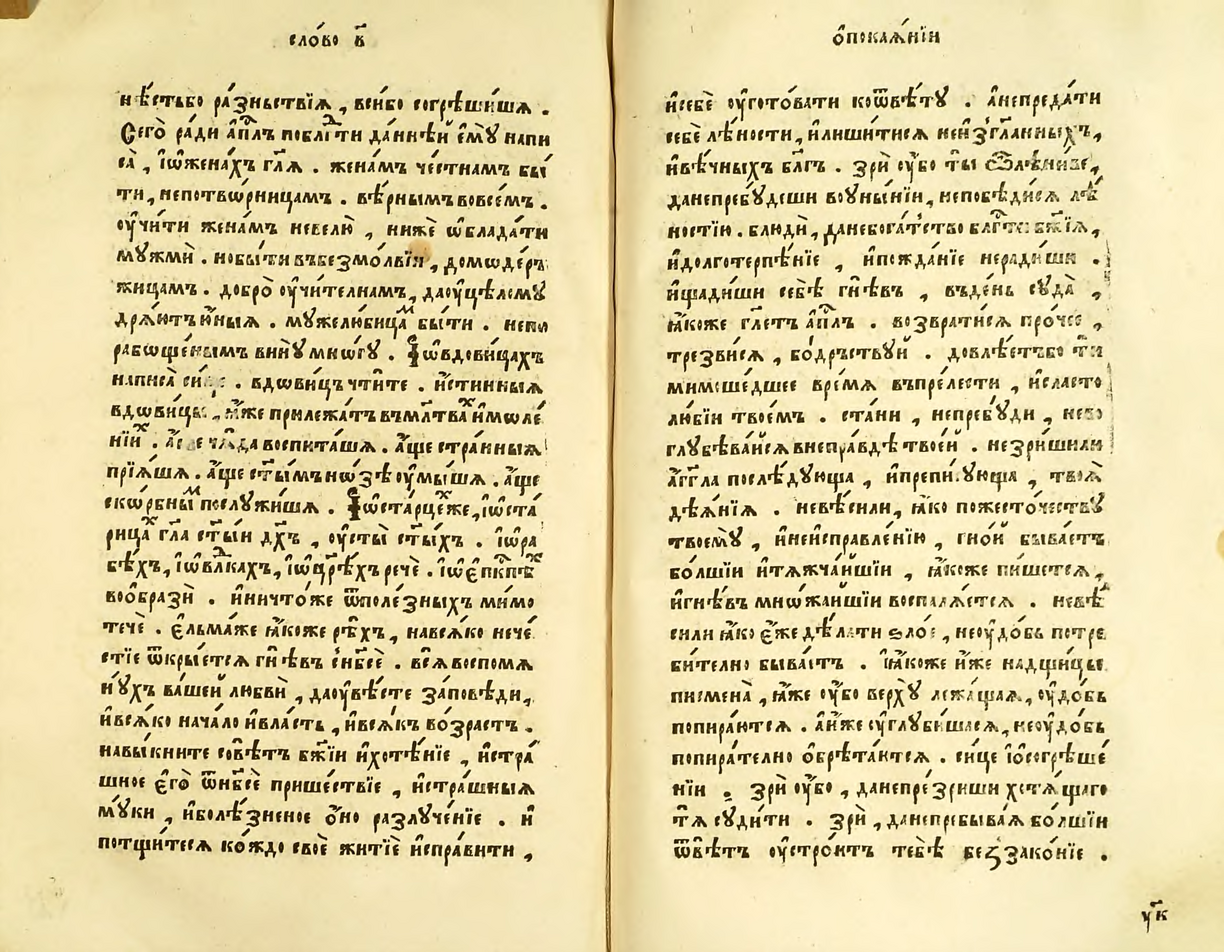 сло́во в҃
нѣ́стьбо ра́зньствїѧ , вси́бо согрѣши́шѧ .
Сего̀ ра́ди а҆пⷭ҇лъ поблⷣгти да́ннѣй є҆мꙋ̀ напи
са̀ , і҆ѡ҆жена́хъ гл҃ѧ . жена́мъ че́стнамъ бы́
ти , непотво́рницамъ . вѣ́рнымъ вовсе́мъ .
оу҆чи́ти жена́мъ невелю̀ , нижѐ ѡ҆блада́ти
мꙋжмѝ . нобы́ти въбезмо́лвїи , домѡдеръ
жицамъ . добро̀ оу҆чи́телнамъ , даоу҆цѣломꙋ
дрѧ́ютъ ю҆́ныѧ . мꙋжелюбицаⷨ бы́ти . непо
рабѡще́нымъ винꙋ̀ мно́гꙋ . І҆ѡ҆вдови́цахъ
написа̀ си́це . вдѡви́цъ чти́те . и҆́стинныѧ
вдѡви́цы , ꙗ҆́же прилежа́тъ въмл҃тваⷯ и҆мо́ле
нїиⷯ . а҆́ще ча̑да воспита́шѧ . а҆́ще стра́нныѧ
прїѧ́шѧ . а҆́ще ст҃ы́мъ но́зѣ оу҆мы́шѧ . а҆́ще
ско́рбныⷨ послꙋжи́шѧ . І҆ѡ҆ста́рцеⷯже , і҆ѡ҆ста́
рицаⷯ гл҃а ст҃ы́и дх҃ъ , оу҆сты̀ ст҃ы́хъ . і҆ѡ҆ра
бѣ́хъ , і҆ѡ҆влⷣкахъ , і҆ѡ҆цр҃ѣ́хъ речѐ . і҆ѡ҆є҆пⷭ҇кпѣⷯ
воо҆бразѝ . и҆ничто́же ѿполе́зныхъ мимо
течѐ . є҆льма́же ꙗ҆́коже рѣ́хъ , навсѧ́ко нече́
стїе ѿкры́етсѧ гнѣ́въ снб҃сѐ . всѧ̑ воспомѧ
нꙋ́хъ ва́шей любвѝ , даоу҆вѣ́сте за́повѣди ,
и҆всѧ́ко нача́ло и҆вла́сть , и҆всѧ́къ во́зрастъ .
навы́кните совѣ́тъ бж҃їи и҆хотѣ́нїе , и҆стра́
шное є҆го̀ ѿнб҃сѐ прише́ствїе , и҆стра́шныѧ
мꙋ́ки , и҆болѣ́зненое о҆́но разлꙋче́нїе . и҆
потщи́тесѧ ко́ждо своѐ житїѐ и҆спра́вити ,
ѻ҆покаѧ́нїи
и҆себѐ оу҆гото́вати коѿвѣ́тꙋ . а҆непреда́ти
себѐ лѣ́ности , и҆лиши́тисѧ неи҆зг҃ла́нныхъ ,
и҆вѣ́чныхъ бл҃гъ . зрѝ оу҆́бо ты̀ ѿлѣ́ниве ,
данепребꙋ́деши воу҆ны́нїи , непобѣ́дисѧ лѣ́
ностїю . блюдѝ , данебога́тство блгⷭ҇ти бж҃їѧ ,
и҆долготерпѣ́нїе , и҆пожда́нїе неради́ши .
и҆щади́ши себѣ̀ гнѣ́въ , въде́нь сꙋда̀ ,
ꙗ҆́коже гл҃етъ а҆пⷭ҇лъ . возврати́сѧ про́чее ,
трезви́сѧ , бо́дрьствꙋй . довлѣ́етъбо тѝ
мимоше́дшее вре́мѧ въпре́лести , и҆сласто
лю́бїи твое́мъ . ста́ни , непребꙋ́ди , нево
глꙋбѣва́йсѧ внепра́вдѣ твое́й . незри́шили
а҆́гг҃ла послѣ́дꙋюща , и҆препи́сꙋюща , твоѧ̀
дѣѧ́нїѧ . невѣ́сили , ꙗ҆́ко пожесто́чествꙋ
твоемꙋ̀ , и҆неи҆справле́нїю , гно́й быва́етъ
бо́лшїи и҆тѧ́жча́йшїи , ꙗ҆́коже пи́шетсѧ ,
и҆гнѣ́въ мно́жайшїи воспалѧ́етсѧ . невѣ́
сили ꙗ҆́ко є҆́же дѣ́лати ѕло́е , неоу҆до́бь потре
би́телно быва́етъ . І҆ꙗ҆́коже и҆́же надщи́цы
писмена̀ , ꙗ҆́же оу҆́бо верхꙋ̀ лежа́щаѧ , оу҆до́бь
попира́ютсѧ . а҆и҆́же оу҆глꙋби́шасѧ , неоу҆до́бь
попира́телно о҆брѣта́ютсѧ . си́це і҆ѻ҆согрѣше́
нїи . зрѝ оу҆́бо , данепре́зриши хотѧ́щаго
тѧ̀ сꙋди́ти . зрѝ , данепребыва́ѧ бо́лшїи
ѿвѣ́тъ оу҆стро́итъ тебѣ̀ беззако́нїе .
ук҃